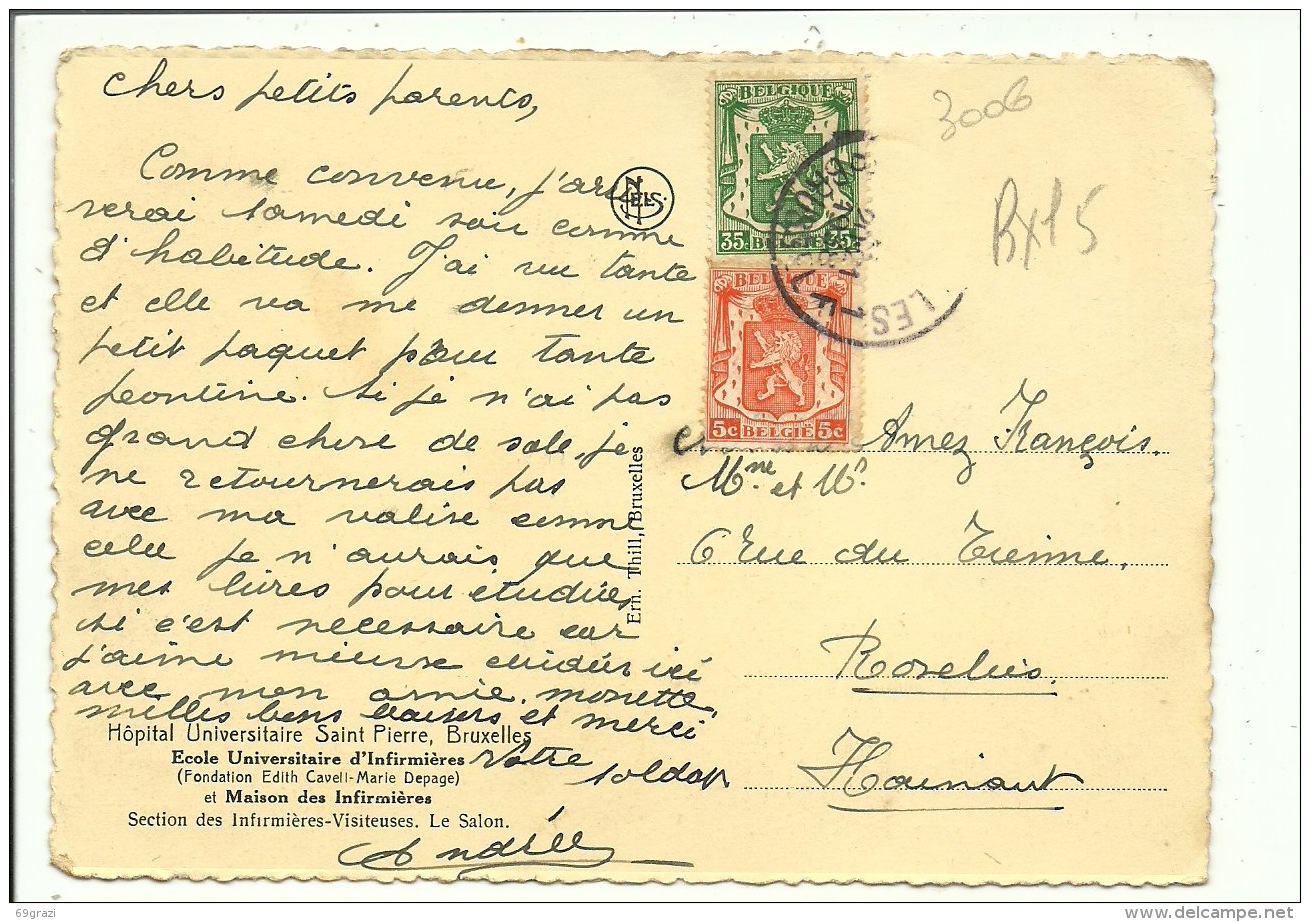 chers petits parents,
Comme convenu, j'arri
verai samedi soir comme
d'habitude. J'ai vu tante
et elle va me donner un
petit paquet pour tante
Leontine. Si je n'ai pas
grand chose de sale, je
ne retournerais pas
avec ma valise comme
cela je n'aurais que
mes livres pour étudier
si c'est necessaire car
j'aime mieux étudier ici
avec mon amie monette,
milles bons baisers et merci
Votre
soldat
Andrée
Hôpital Universitaire Saint Pierre, Bruxelles
Ecole Universitaire d'Infirmières
(Fondation Edith Cavell-Marie Depage)
et Maison des Infirmières
Section des Infirmières-Visiteuses. Le Salon.
NELS
Ern. Thill, Bruxelles
BELGIQUE
35c BELGIË 35c
BELGIQUE
5c BELGIË 5c
3006
Bx15
Amez François.
Mme et Mr
6 rue du
Hainaut
69grazi
delcampe.net